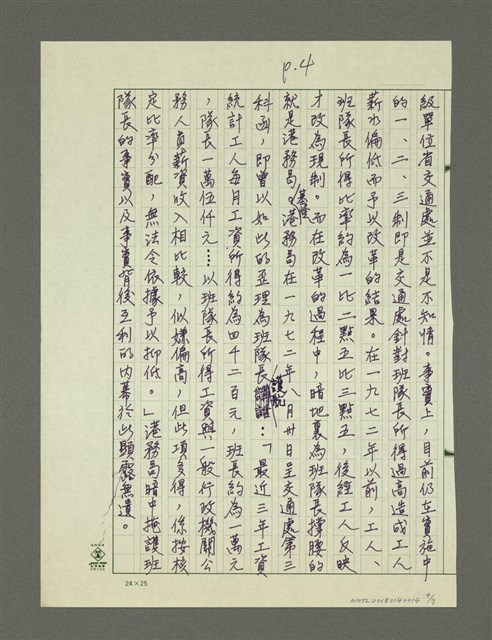 p.4
級單位省交通處並不是不知情。事實上，目前仍在實施中
的一、二、三制即是交通處針對班隊長所得過高造成工人
薪水偏低而予以改革的結果。在一九七二年以前，工人、
班隊長所得比率約為一比二點五比三點五，後經工人反映
才改為現制。而在改革的過程中，暗地裏為班隊長撐腰的
就是港務局。基隆港務局在一九七二年八月卅日呈交通處第三
科函，即曾以如此的歪理為班隊長護航：「最近三年工資
統計工人每月工資所得約為四千二百元，班長約為一萬元
，隊長一萬伍仟元……以班隊長所得工資與一般行政機關公
務人員薪資收入相比較，似嫌偏高，但此項多得，係按核
定比率分配，無法令依據予以抑低。」港務局暗中掩護班
隊長的事實以及事實背後互利的內幕於此顯露無遺。
24×25
NMTL20180140014 4/7